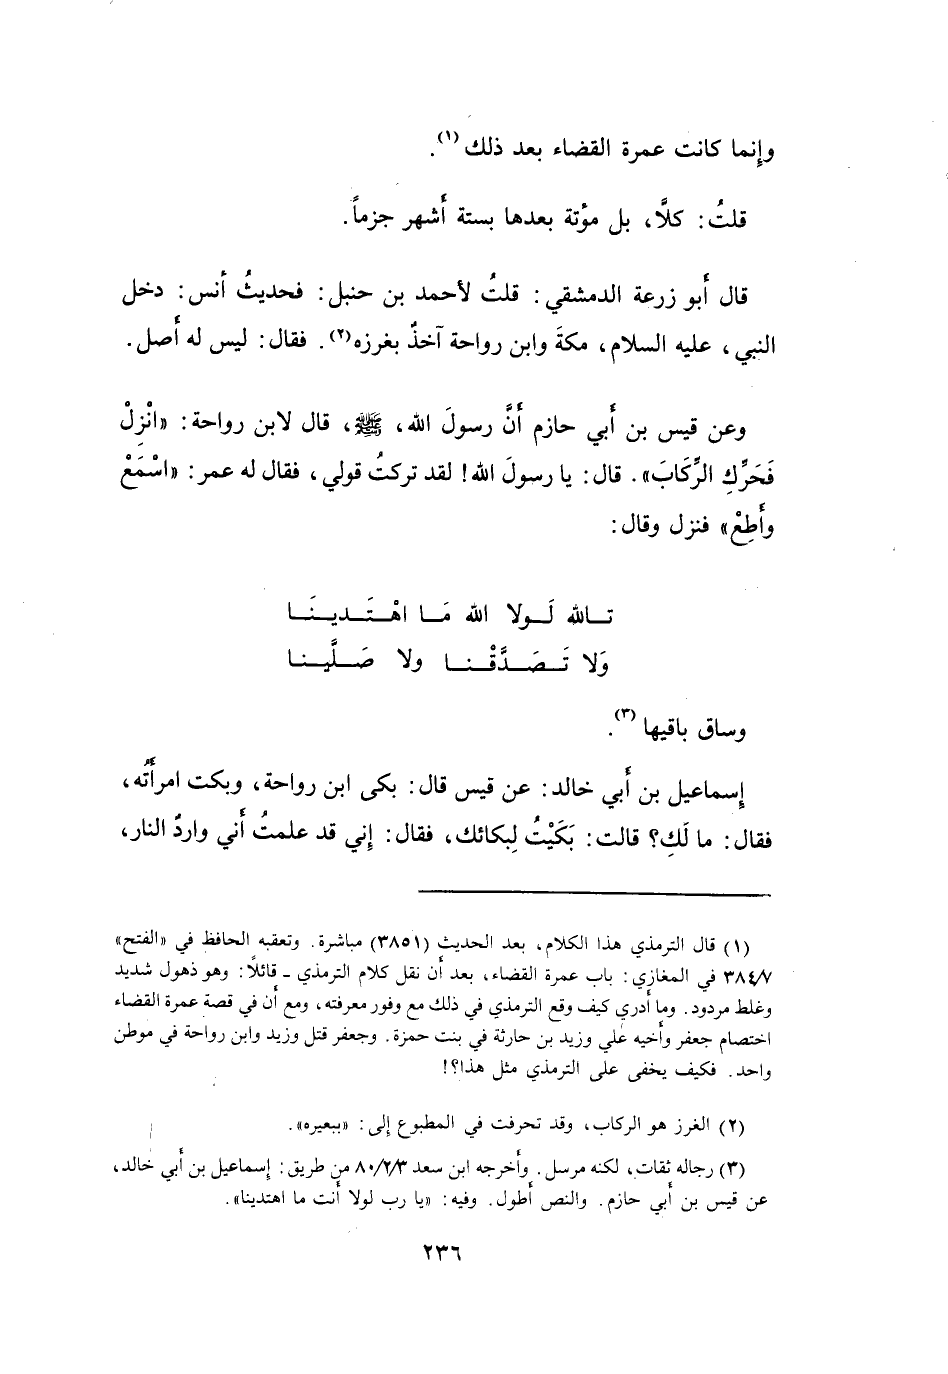 وإنما كانت عمرة القضاء بعد ذلك (١).
قلتُ: كلَّا، بل مؤتة بعدها بستة أَشهر جزماً.
قال أَبو زرعة الدمشقي: قلتُ لأحمد بن حنبل: فحديثُ أنس: دخل
النبي، عليه السلام، مكةَ وابن رواحة آخذٌ بغرزه(٢). فقال: ليس له أَصل.
وعن قيس بن أَبي حازم أَنَّ رسولَ الله، ﷺ، قال لابن رواحة: «انْزِلْ
فَحَرِّكِ الرِّكَابَ». قال: يا رسولَ الله! لقد تركتُ قولي، فقال له عمر: «اسْمَعْ
وأَطِعْ» فنزل وقال:
تـالله لَـولا الله مَـا اهْـتَـديـنَـا
وَلا تَـصَـدَّقْـنـا ولا صَـلَّيـنـا
وساق باقيها (٣).
إسماعيل بن أَبي خالد: عن قيس قال: بكى ابن رواحة، وبكت امرأَتُه،
فقال: ما لَكِ؟ قالت: بَكَيْتُ لِبكائك، فقال: إني قد علمتُ أَني واردٌ النار،
(١) قال الترمذي هذا الكلام، بعد الحديث (٣٨٥١) مباشرة. وتعقبه الحافظ في «الفتح»
٣٨٤/٧ في المغازي: باب عمرة القضاء، بعد أن نقل كلام الترمذي ـ قائلًا: وهو ذهول شديد
وغلط مردود. وما أدري كيف وقع الترمذي في ذلك مع وفور معرفته، ومع أن في قصة عمرة القضاء
اختصام جعفر وأخيه علي وزيد بن حارثة في بنت حمزة. وجعفر قتل وزيد وابن رواحة في موطن
واحد. فكيف يخفى على الترمذي مثل هذا؟!
(٢) الغرز هو الركاب، وقد تحرفت في المطبوع إلى: «ببعيره».
(٣) رجاله ثقات، لكنه مرسل. وأخرجه ابن سعد ٨٠/٢/٣ من طريق: إسماعيل بن أبي خالد،
عن قيس بن أبي حازم. والنص أطول. وفيه: «يا رب لولا أنت ما اهتدينا».
٢٣٦